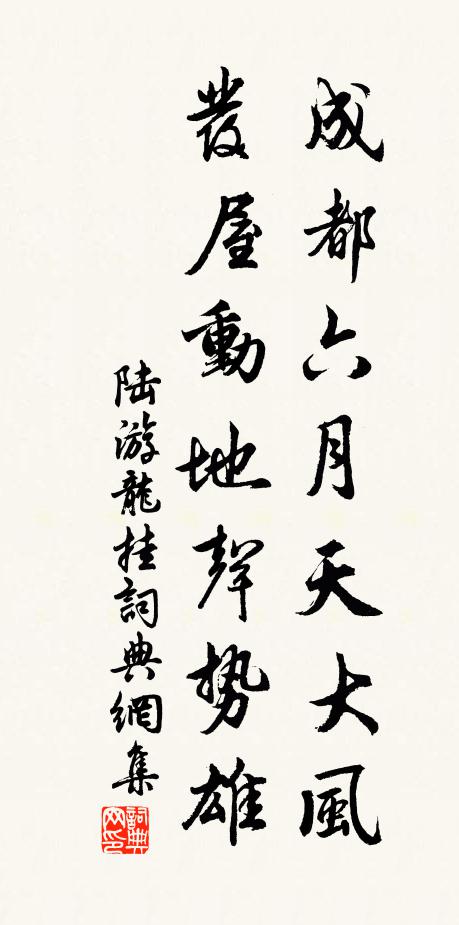 成都六月天大風
發屋動地聲勢雄
陸游龍挂詞典網集
詞典网印